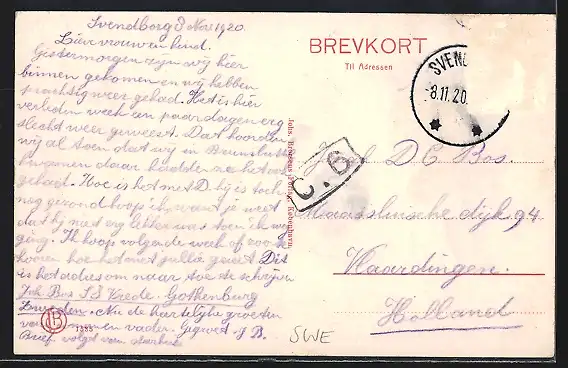 Svendborg 8 Nov 1920.
Lieve vrouw en kind.
Gistermorgen zijn wij hier
binnen gekomen en wij hebben
prachtig weer gehad. Het is hier
verleden week een paar dagen erg
slecht weer geweest. Dat hoorden
wij al toen dat wij in Brunsbut
kwamen daar hadden ze het ook
gehad. Hoe is het met D. hij is toch
nog gezond hoop ik, want je weet
dat hij niet erg lekker was toen ik weg
ging. Ik hoop volgende week of zoo te
hooren hoe het met jullie gaat. Dit
is het adres om naar toe te schrijven
Joh. Bos S.S Vrede. Gothenburg
Zweden. Nu de hartelijke groeten
van man en vader. Gegroet J B.
Brief volgt van
1388
Johs. Brorsens Forlag, København
BREVKORT
Til Adressen
SVEND
8.11.20.
C.6
D C Bos.
Maassluische dijk 94.
Vlaardingen.
Holland
SWE